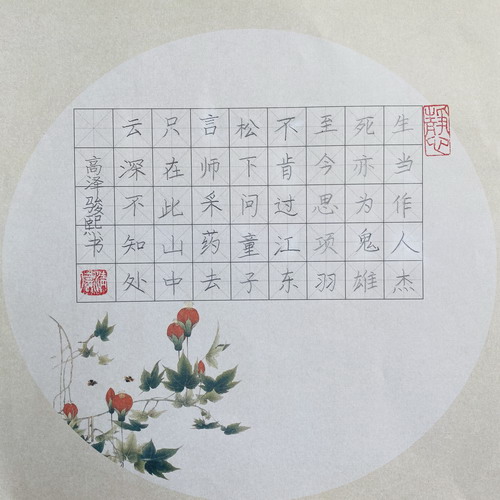 生当作人杰
死亦为鬼雄
至今思项羽
不肯过江东
松下问童子
言师采药去
只在此山中
云深不知处
高泽骏熙书
静心